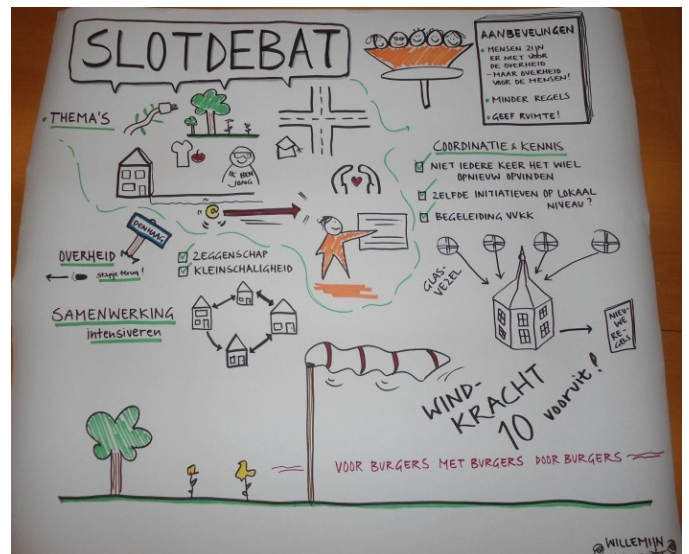 SLOTDEBAT
AANBEVELINGEN
• MENSEN ZIJN
ER NIET VOOR
DE OVERHEID
- MAAR OVERHEID
VOOR DE MENSEN!
• MINDER REGELS
• GEEF RUIMTE!
• THEMA'S
IK BEN
JONG
COORDINATIE & KENNIS
NIET IEDERE KEER HET WIEL
OPNIEUW OPVINDEN
ZELFDE INITIATIEVEN OP LOKAAL
NIVEAU?
BEGELEIDING VVKK
DEN HAAG
OVERHEID
stapje terug!
ZEGGENSCHAP
KLEINSCHALIGHEID
GLAS-
VEZEL
SAMENWERKING
intensiveren
NIEU-
WE
RE-
GELS
WIND-
KRACHT
10 vooruit!
VOOR BURGERS MET BURGERS DOOR BURGERS
@WILLEMIJN